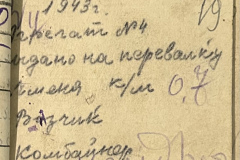 1943г.
19.
Агрегат №4
ыдано на перевалку
емена к/м 0,7
Возчик
Комбайнер